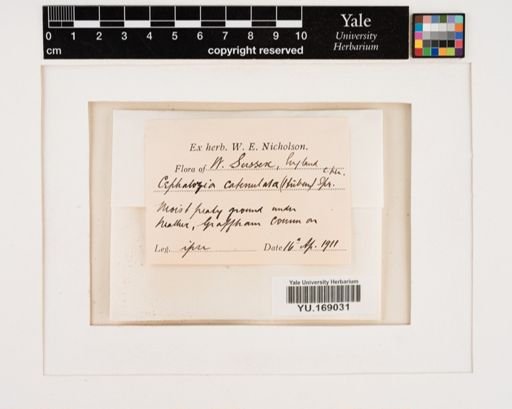 0 1 2 3 4 5 6 7 8 9 10
cm copyright reserved
Yale
University
Herbarium
Ex herb. W. E. Nicholson.
Flora of W. Sussex, England
c. per.
Cephalozia catenulata (Hüben) Spr.
Moist peaty ground under
heather, Graffham Common
Leg. ipse Date 16 Ap. 1911
Yale University Herbarium
YU.169031